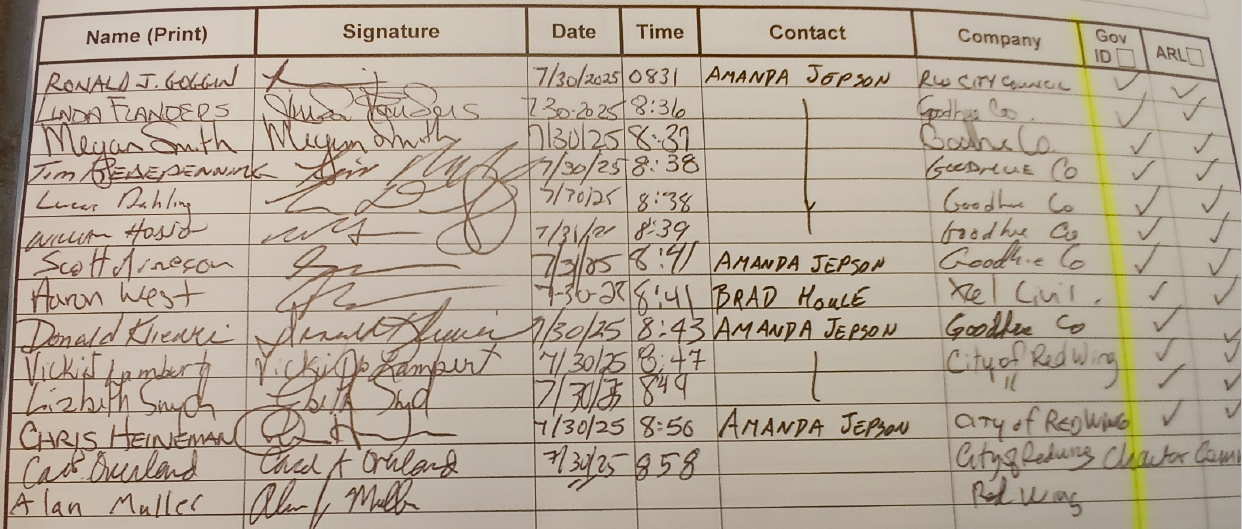 Name (Print) Signature Date Time Contact Company Gov ID ARL
RONALD J. GOGGIN 7/30/2025 0831 AMANDA JEPSON RW CITY COUNCIL
LINDA FLANDERS Linda Flanders 7-30-2025 8:36 Goodhue Co.
Megan Smith Megan Smith 7/30/25 8:37 Goodhue Co.
Tim 7/30/25 8:38 GOODHUE Co
Lucas Dahling 7/30/25 8:38 Goodhue Co
William 8:39 Goodhue Co
Scott Arneson 8:41 AMANDA JEPSON Goodhue Co
Aaron West 8:41 BRAD HOULE Xcel Civil.
Donald 7/30/25 8:43 AMANDA JEPSON Goodhue Co
Vicki Jo Lambert Vicki Jo Lambert 7/30/25 8:47 City of Red Wing
Lizbeth 849 "
CHRIS HEINEMAN 7/30/25 8:56 AMANDA JEPSON City of RED WING
Carol Overland Carol A Overland 7/30/25 858 City of Redwing Charter Comm
Alan Muller Alan Muller Red Wing